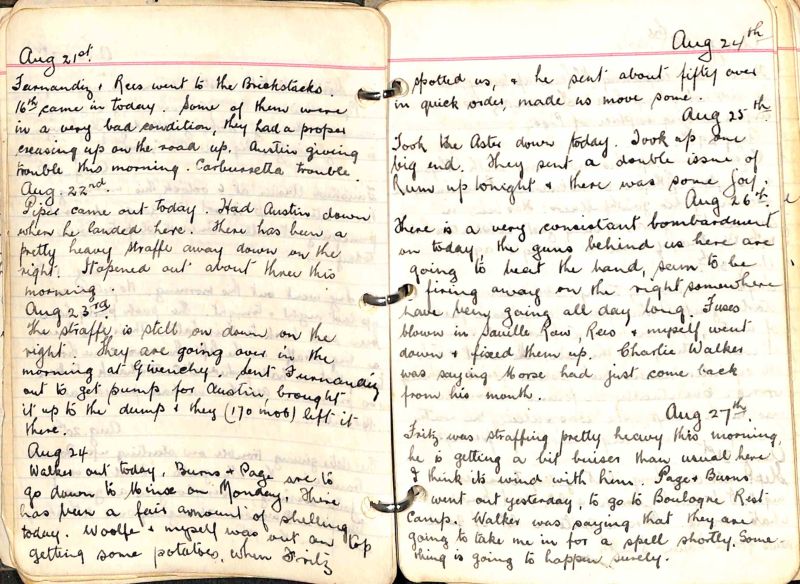 Aug 21st.
Furnandiz + Rees went to the Brickstacks.
16th came in today. Some of them were
in a very bad condition, they had a proper
creasing up on the road up. Austin giving
trouble this morning. Carburetta trouble.
Aug. 22nd.
Piper came out today. Had Austin down
when he landed here. There has been a
pretty heavy straffe away down on the
right. It opened out about three this
morning.
Aug 23rd
The straffe is still on down on the
right. They are going over in the
morning at Givenchy. Sent Furnandiz
out to get pump for Austin, brought
it up to the dump + they (170 mob) left it
there.
Aug 24
Walker out today, Burns + Page are to
go down to Mince on Monday. There
has been a fair amount of shelling
today. Woolfe + myself was out on top
getting some potatoes, when Fritz
Aug 24th
spotted us, + he sent about fifty over
in quick order, made us move some.
Aug 25th.
Took the Aster down today. Took up one
big end. They sent a double issue of
Rum up tonight + there was some Joy.
Aug 26th.
There is a very consistant bombardment
on today, the guns behind us here are
going to beat the band, seem to be
firing away on the right somewhere
have being going all day long. Fuses
blown in Saville Row, Rees + myself went
down + fixed them up. Charlie Walker
was saying Morse had just come back
from his month.
Aug 27th.
Fritz was straffing pretty heavy this morning,
he is getting a bit buiser than usual here
I think its wind with him. Page + Burns
went out yesterday, to go to Boulogne Rest
Camp. Walker was saying that they are
going to take me in for a spell shortly. Some-
thing is going to happen surely.